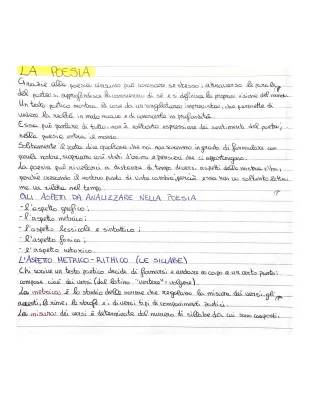 LA POESIA
Grazie alla poesia ciascuno può conoscere se stesso; attraverso le parole
del poeta si approfondisce la conoscenza di sé e si definisce la propria visione del mondo.
Un testo poetico mostra le cose da un'angolatura imprevista, che permette di
vedere la realtà in modo nuovo e di conoscerla in profondità.
Essa può parlare di tutto: non è soltanto espressione dei sentimenti del poeta;
nella poesia entra il mondo.
Solitamente il poeta dice qualcosa che noi non saremmo in grado di formulare con
parole nostre, scoprendo così stati d'animo e pensieri che ci appartengono.
La poesia può rivelarci a distanza di tempo diversi aspetti della nostra vita,
perché crescendo il nostro punto di vista cambia, perciò essa non va soltanto letta,
ma va riletta nel tempo.
GLI ASPETTI DA ANALIZZARE NELLA POESIA
- l'aspetto grafico;
- l'aspetto metrico;
- l'aspetto lessicale e sintattico;
- l'aspetto fonico;
- l'aspetto retorico.
L'ASPETTO METRICO-RITMICO (LE SILLABE)
Chi scrive un testo poetico decide di fermarsi e andare a capo a un certo punto:
compone cioè dei versi (dal latino "vertere" = volgere).
La metrica è lo studio delle norme che regolano la misura dei versi, gli
accenti, le rime, le strofe e i diversi tipi di componimenti poetici.
La misura dei versi è determinata dal numero di sillabe da cui sono composti.